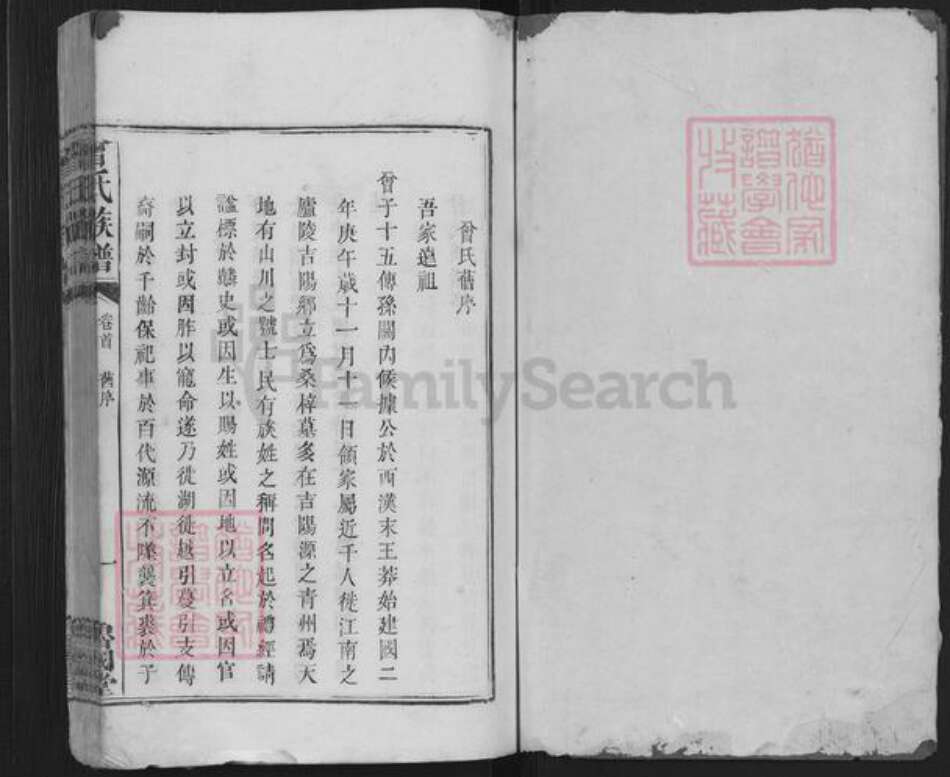 猶他家
譜學會
收藏
曾氏舊序
吾家鼻祖
曾子十五傳孫關內侯據公於西漢末王莽始建國二
年庚午歲十一月十一日領家屬近千人徙江南之
廬陵古陽鄉立爲桑梓墓多在吉陽源之青州焉天
地有山川之號士民有族姓之稱問名起於禮經請
諡標於韓史或因生以賜姓或因地以立名或因官
以立封或因胙以寵命遂乃從湖徙越引蔓引支傳
嗣於千齡保祀事於百代源流不墜襲箕裘於于
曾氏族譜
卷首 舊序
一
魯國堂
猶他家
譜學會
收藏
FamilySearch